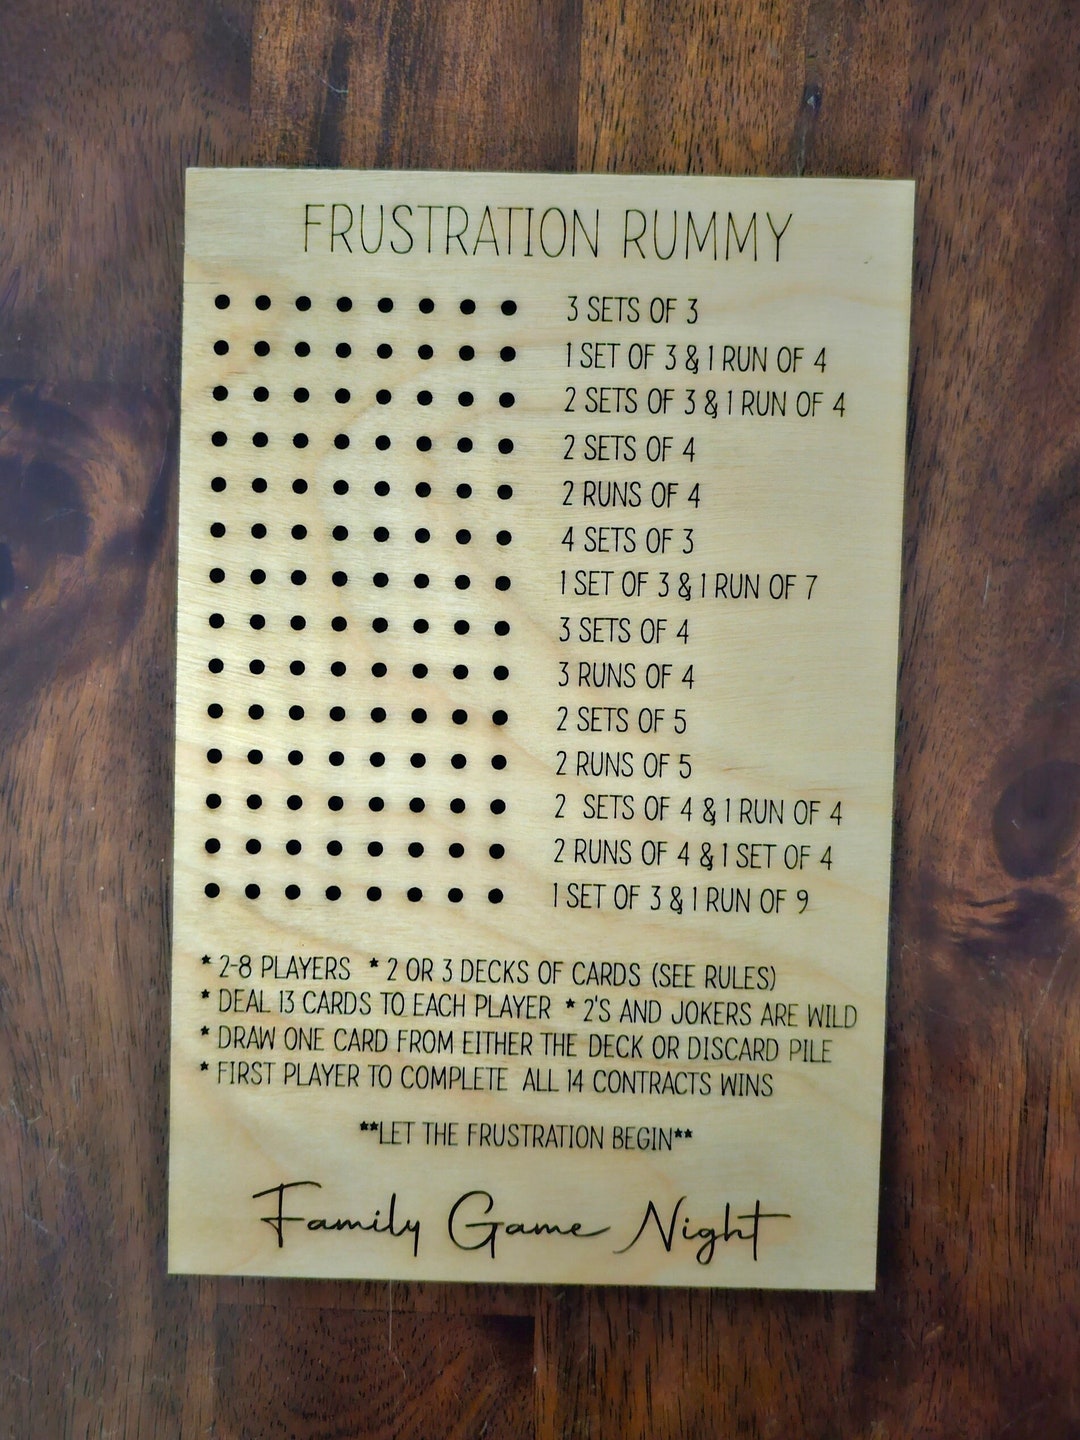 FRUSTRATION RUMMY
3 SETS OF 3
1 SET OF 3 & 1 RUN OF 4
2 SETS OF 3 & 1 RUN OF 4
2 SETS OF 4
2 RUNS OF 4
4 SETS OF 3
1 SET OF 3 & 1 RUN OF 7
3 SETS OF 4
3 RUNS OF 4
2 SETS OF 5
2 RUNS OF 5
2 SETS OF 4 & 1 RUN OF 4
2 RUNS OF 4 & 1 SET OF 4
1 SET OF 3 & 1 RUN OF 9
* 2-8 PLAYERS * 2 OR 3 DECKS OF CARDS (SEE RULES)
* DEAL 13 CARDS TO EACH PLAYER * 2'S AND JOKERS ARE WILD
* DRAW ONE CARD FROM EITHER THE DECK OR DISCARD PILE
* FIRST PLAYER TO COMPLETE ALL 14 CONTRACTS WINS
**LET THE FRUSTRATION BEGIN**
Family Game Night